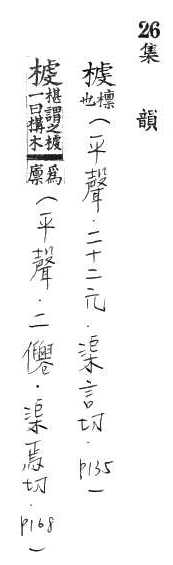 26 集韻
榩 檁也（平聲．二十二元．渠言切．p135）
榩 椹謂之榩一曰構木為廩（平聲．二僊．渠焉切．p168）